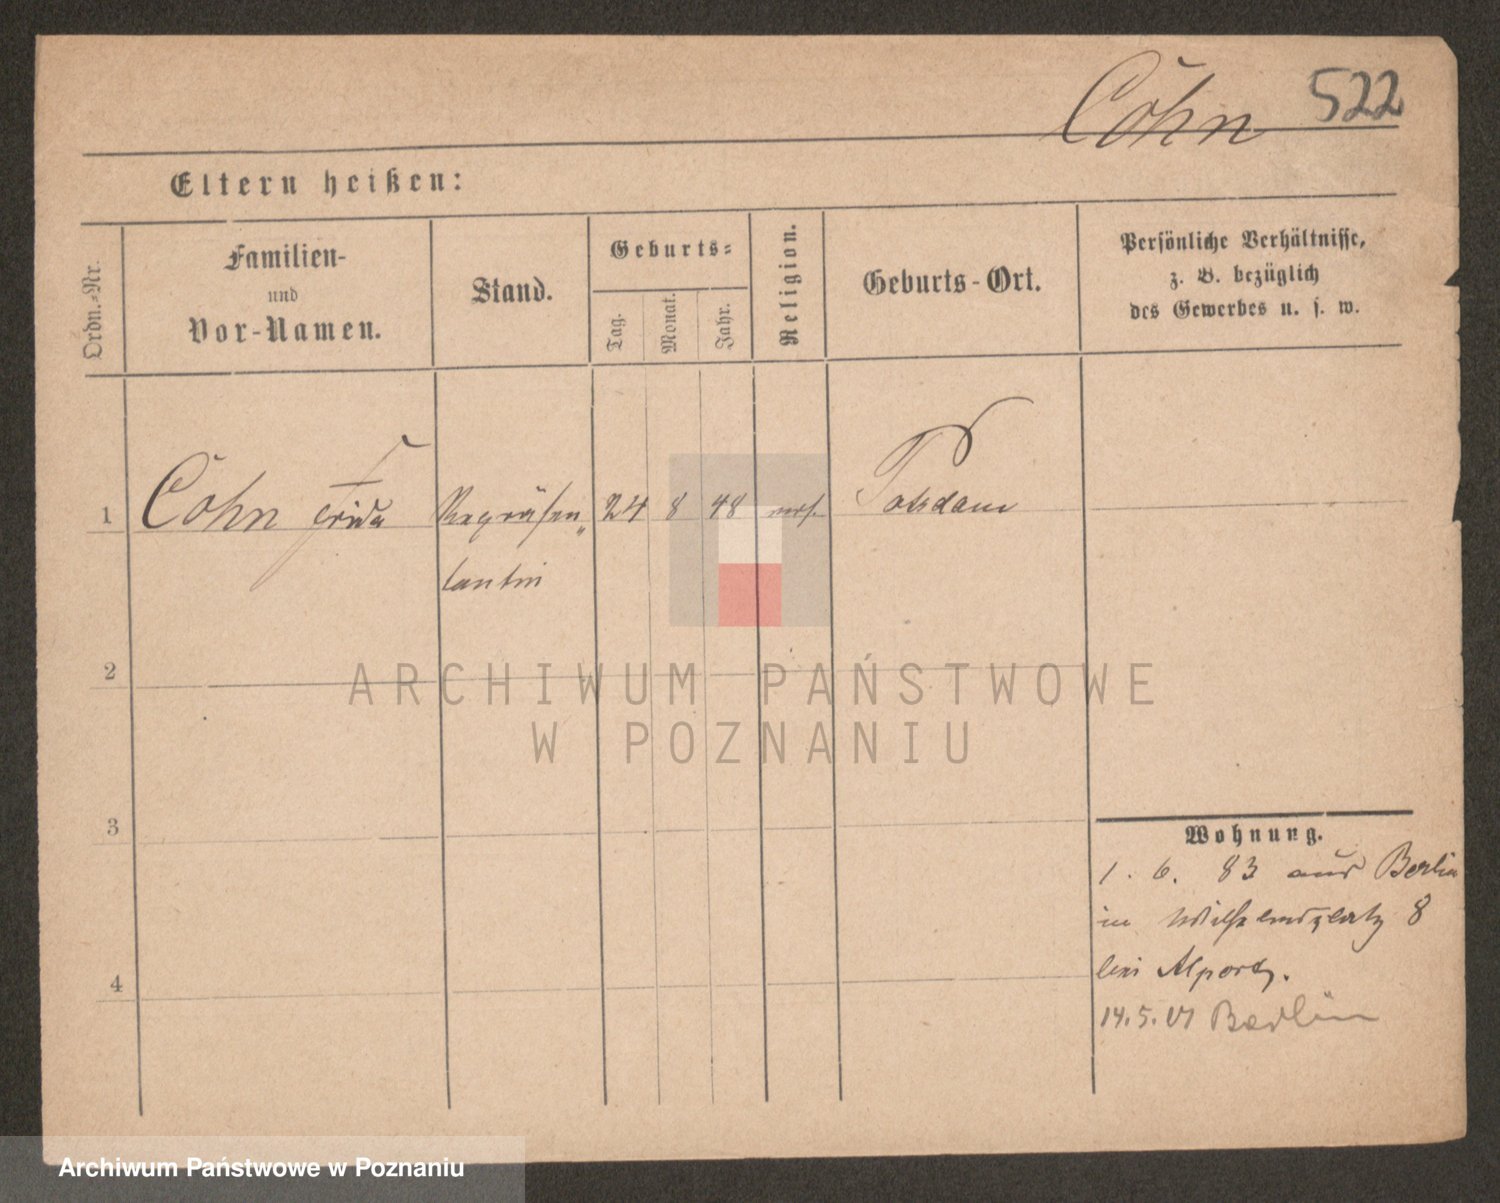 Cohn 522
Eltern heißen:
Ordn.-Nr.
Familien-
und
Vor-Namen.
Stand.
Geburts-
Tag.
Monat.
Jahr.
Religion.
Geburts-Ort.
Persönliche Verhältnisse,
z. B. bezüglich
des Gewerbes u. s. w.
1 Cohn Frida Repräsen„ 24 8 48 mos. Potsdam
tantin
2
3
4
Wohnung.
1. 6. 83 aus Berlin
in Wilhelmsplatz 8
bei
14.5. Berlin
ARCHIWUM PAŃSTWOWE
W POZNANIU
Archiwum Państwowe w Poznaniu